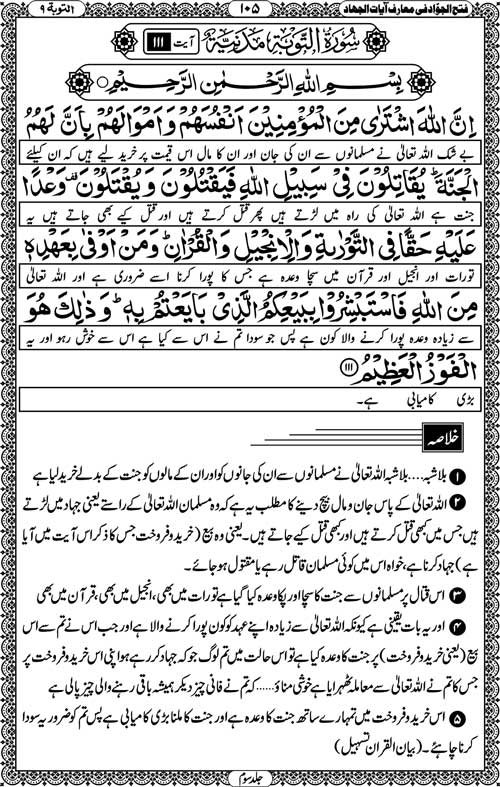 التوبۃ ۹
۱۰۵
فتح الجوّاد فی معارف آیات الجهاد
سُورَةُ التَّوْبَةِ مَدَنِيَّةٌ آیت ۱۱۱
بِسْمِ اللهِ الرَّحْمٰنِ الرَّحِيْمِ
اِنَّ اللهَ اشْتَرٰى مِنَ الْمُؤْمِنِيْنَ اَنْفُسَهُمْ وَاَمْوَالَهُمْ بِاَنَّ لَهُمُ
بے شک اللہ تعالیٰ نے مسلمانوں سے ان کی جان اور ان کا مال اس قیمت پر خرید لیے ہیں کہ ان کیلئے
الْجَنَّةَ ؕ يُقَاتِلُوْنَ فِيْ سَبِيْلِ اللهِ فَيَقْتُلُوْنَ وَيُقْتَلُوْنَ ۫ وَعْدًا
جنت ہے اللہ تعالیٰ کی راہ میں لڑتے ہیں پھر قتل کرتے ہیں اور قتل کیے بھی جاتے ہیں یہ
عَلَيْهِ حَقًّا فِي التَّوْرٰىةِ وَالْاِنْجِيْلِ وَالْقُرْاٰنِ ؕ وَمَنْ اَوْفٰى بِعَهْدِهٖ
تورات اور انجیل اور قرآن میں سچا وعدہ ہے جس کا پورا کرنا اسے ضروری ہے اور اللہ تعالیٰ
مِنَ اللهِ فَاسْتَبْشِرُوْا بِبَيْعِكُمُ الَّذِيْ بَايَعْتُمْ بِهٖ ؕ وَذٰلِكَ هُوَ
سے زیادہ وعدہ پورا کرنے والا کون ہے پس جو سودا تم نے اس سے کیا ہے اس سے خوش رہو اور یہ
الْفَوْزُ الْعَظِيْمُ ۱۱۱
بڑی کامیابی ہے۔
خلاصہ
۱ بلاشبہ.... بلاشبہ اللہ تعالیٰ نے مسلمانوں سے ان کی جانوں کو اور ان کے مالوں کو جنت کے بدلے خرید لیا ہے
۲ اللہ تعالیٰ کے پاس جان و مال بیچ دینے کا مطلب یہ ہے کہ وہ مسلمان اللہ تعالیٰ کے راستے یعنی جہاد میں لڑتے
ہیں جس میں کبھی قتل کرتے ہیں اور کبھی قتل کیے جاتے ہیں۔ یعنی وہ بیع (خرید و فروخت جس کا ذکر اس آیت میں آیا
ہے) جہاد کرنا ہے، خواہ اس میں کوئی مسلمان قاتل رہے یا مقتول ہو جائے۔
۳ اس قتال پر مسلمانوں سے جنت کا سچا اور پکا وعدہ کیا گیا ہے تورات میں بھی، انجیل میں بھی، قرآن میں بھی
۴ اور یہ بات یقینی ہے کیونکہ اللہ تعالیٰ سے زیادہ اپنے عہد کو کون پورا کرنے والا ہے اور جب اس نے تم سے اس
بیع (یعنی خرید و فروخت) پر جنت کا وعدہ کیا ہے تو اس حالت میں تم لوگ جو کہ جہاد کر رہے ہو اپنی اس خرید و فروخت پر
جس کا تم نے اللہ تعالیٰ سے معاملہ ٹھہرایا ہے خوشی مناؤ...... کہ تم نے فانی چیز دیکر ہمیشہ باقی رہنے والی چیز پالی ہے
۵ اس خرید و فروخت میں تمہارے ساتھ جنت کا وعدہ ہے اور جنت کا ملنا بڑی کامیابی ہے پس تم کو ضرور یہ سودا
کرنا چاہئے۔ (بیان القران تسہیل)
جلد سوم